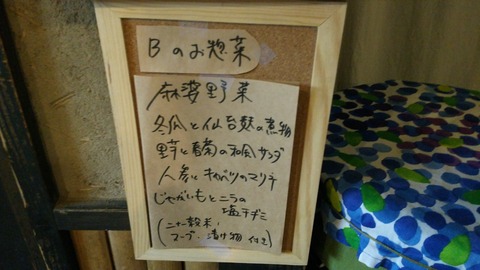 Bのお惣菜
麻婆野菜
冬瓜と仙台麩の煮物
里芋と春菊の和風サラダ
人参とキャベツのマリネ
じゃがいもとニラの
塩チヂミ
(二十一穀米・
スープ・漬け物 付き)